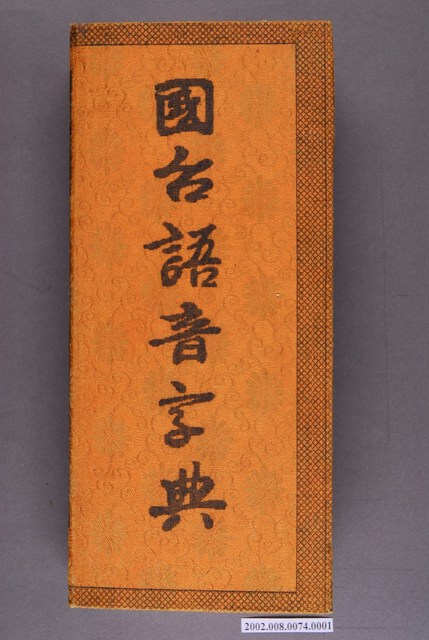 國台語音字典
2002.008.0074.0001